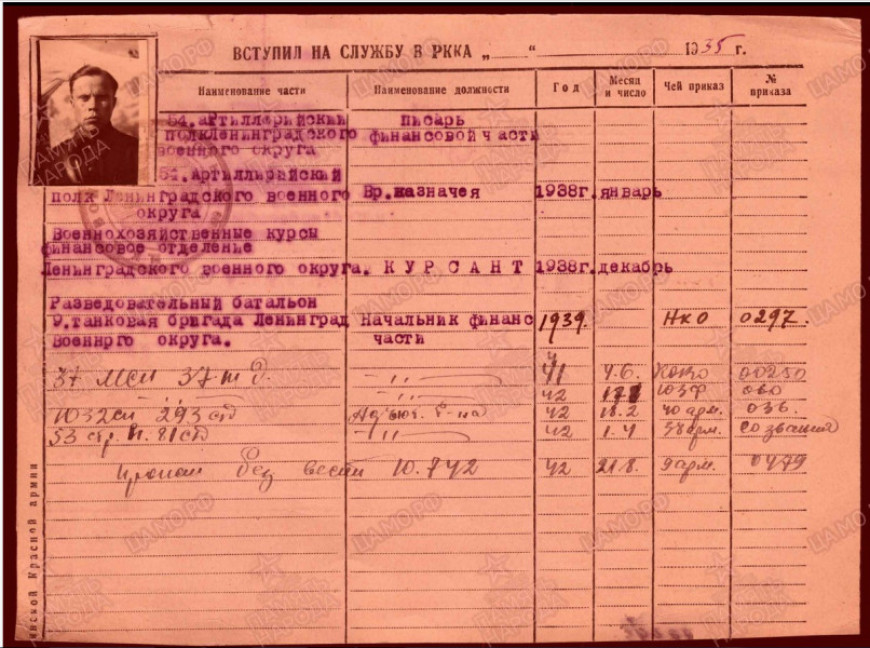 ВСТУПИЛ НА СЛУЖБУ В РККА „ “ 1935 г.
Наименование части Наименование должности Год Месяц и число Чей приказ № приказа
54.артиллерийский писарь
полкЛенинградского финансовой части
военного округа
51.Артиллирайский
полк Ленинградского военного Вр.казначея 1938г.январь
округа
Военнохозяйственные курсы
финансовое отделение
Ленинградского военного округа. КУРСАНТ 1938г.декабрь
Разведовательный батальон
9.танковая бригада Ленинград Начальник финанс 1939. НКО 0297.
Военнрго округа. части
37 мсп 37 т д. –"– 41 4.6. 00250
–"– 42 ЮЗФ
1032сп 293 сд Адъют. б-на 42 18.2 40 арм. 036.
53 стр. п. 81сд –"– 42 1.4 38арм. со звания
пропал без вести 10.7 42 42 21.8. 9 арм. 0479
инской Красной армии
ЦАМО.РФ
ПАМЯТЬ НАРОДА